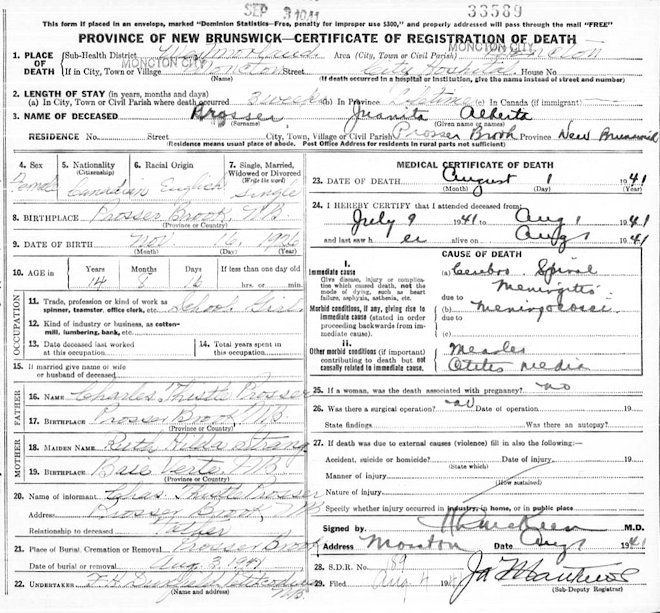 SEP 3 1941
33589
If this form is placed in an envelope, marked "Dominion Statistics—Free, penalty for improper use $300," and properly addressed will pass through the mail "FREE"
PROVINCE OF NEW BRUNSWICK—CERTIFICATE OF REGISTRATION OF DEATH
1. PLACE OF DEATH
Sub-Health District Westmorland Area (City, Town or Civil Parish) MONCTON CITY Moncton
If in City, Town or Village MONCTON CITY Moncton Street City Hospital House No
(Name) (If death occurred in a hospital or institution, give the name instead of street and number)
2. LENGTH OF STAY (in years, months and days)
(a) In City, Town or Civil Parish where death occurred 3 weeks (b) In Province Lifetime (c) In Canada (if immigrant)
3. NAME OF DECEASED Prosser Juanita Alberta
(Surname) (Given name or names)
RESIDENCE No. Street City, Town, Village or Civil Parish Prosser Brook Province New Brunswick
(Residence means usual place of abode. Post Office Address for residents in rural parts not sufficient)
4. Sex Female
5. Nationality (Citizenship) Canadian
6. Racial Origin English
7. Single, Married, Widowed or Divorced (Write the word) Single
8. BIRTHPLACE Prosser Brook, N.B.
(Province or Country)
9. DATE OF BIRTH Nov 16, 1926
(Month) (Day) (Year)
10. AGE in Years Months Days If less than one day
14 8 16 hrs. or min.
OCCUPATION
11. Trade, profession or kind of work as spinner, teamster, office clerk, etc. School Girl
12. Kind of industry or business, as cotton-mill, lumbering, bank, etc.
13. Date deceased last worked at this occupation
14. Total years spent in this occupation
15. If married give name of wife or husband of deceased
FATHER
16. NAME Charles Thistle Prosser
17. BIRTHPLACE Prosser Brook, N.B.
(Province or Country)
MOTHER
18. MAIDEN NAME Ruth Hilda
19. BIRTHPLACE Baie Verte N.B.
(Province or Country)
20. Name of informant Chas. Thistle Prosser
Address Prosser Brook, N.B.
Relationship to deceased Father
21. Place of Burial, Cremation or Removal Prosser Brook
Date of burial or removal Aug. 3, 1941
22. UNDERTAKER F. H. N.B.
(Name and address)
MEDICAL CERTIFICATE OF DEATH
23. DATE OF DEATH August 1 1941
(Month) (Day) (Year)
24. I HEREBY CERTIFY that I attended deceased from:
July 9 1941 to Aug 1 1941
and last saw h er alive on Aug 1 1941
CAUSE OF DEATH
I.
Immediate cause
Give disease, injury or complication which caused death, not the mode of dying, such as heart failure, asphyxia, asthenia, etc.
(a) Cerebro Spinal Meningitis
due to
Morbid conditions, if any, giving rise to immediate cause (stated in order proceeding backwards from immediate cause).
(b)
due to
(c)
II.
Other morbid conditions (if important) contributing to death but not causally related to immediate cause.
Measles
Otitis Media
25. If a woman, was the death associated with pregnancy? no
26. Was there a surgical operation? no Date of operation 19
State findings Was there an autopsy?
27. If death was due to external causes (violence) fill in also the following:—
Accident, suicide or homicide? Date of injury 19
(State which)
Manner of injury
(How sustained)
Nature of injury
Specify whether injury occurred in industry, in home, or in public place
Signed by M.D.
Address Moncton Date Aug 1 1941
28. S.D.R. 189
29. Filed Aug 4
(Sub-Deputy Registrar)